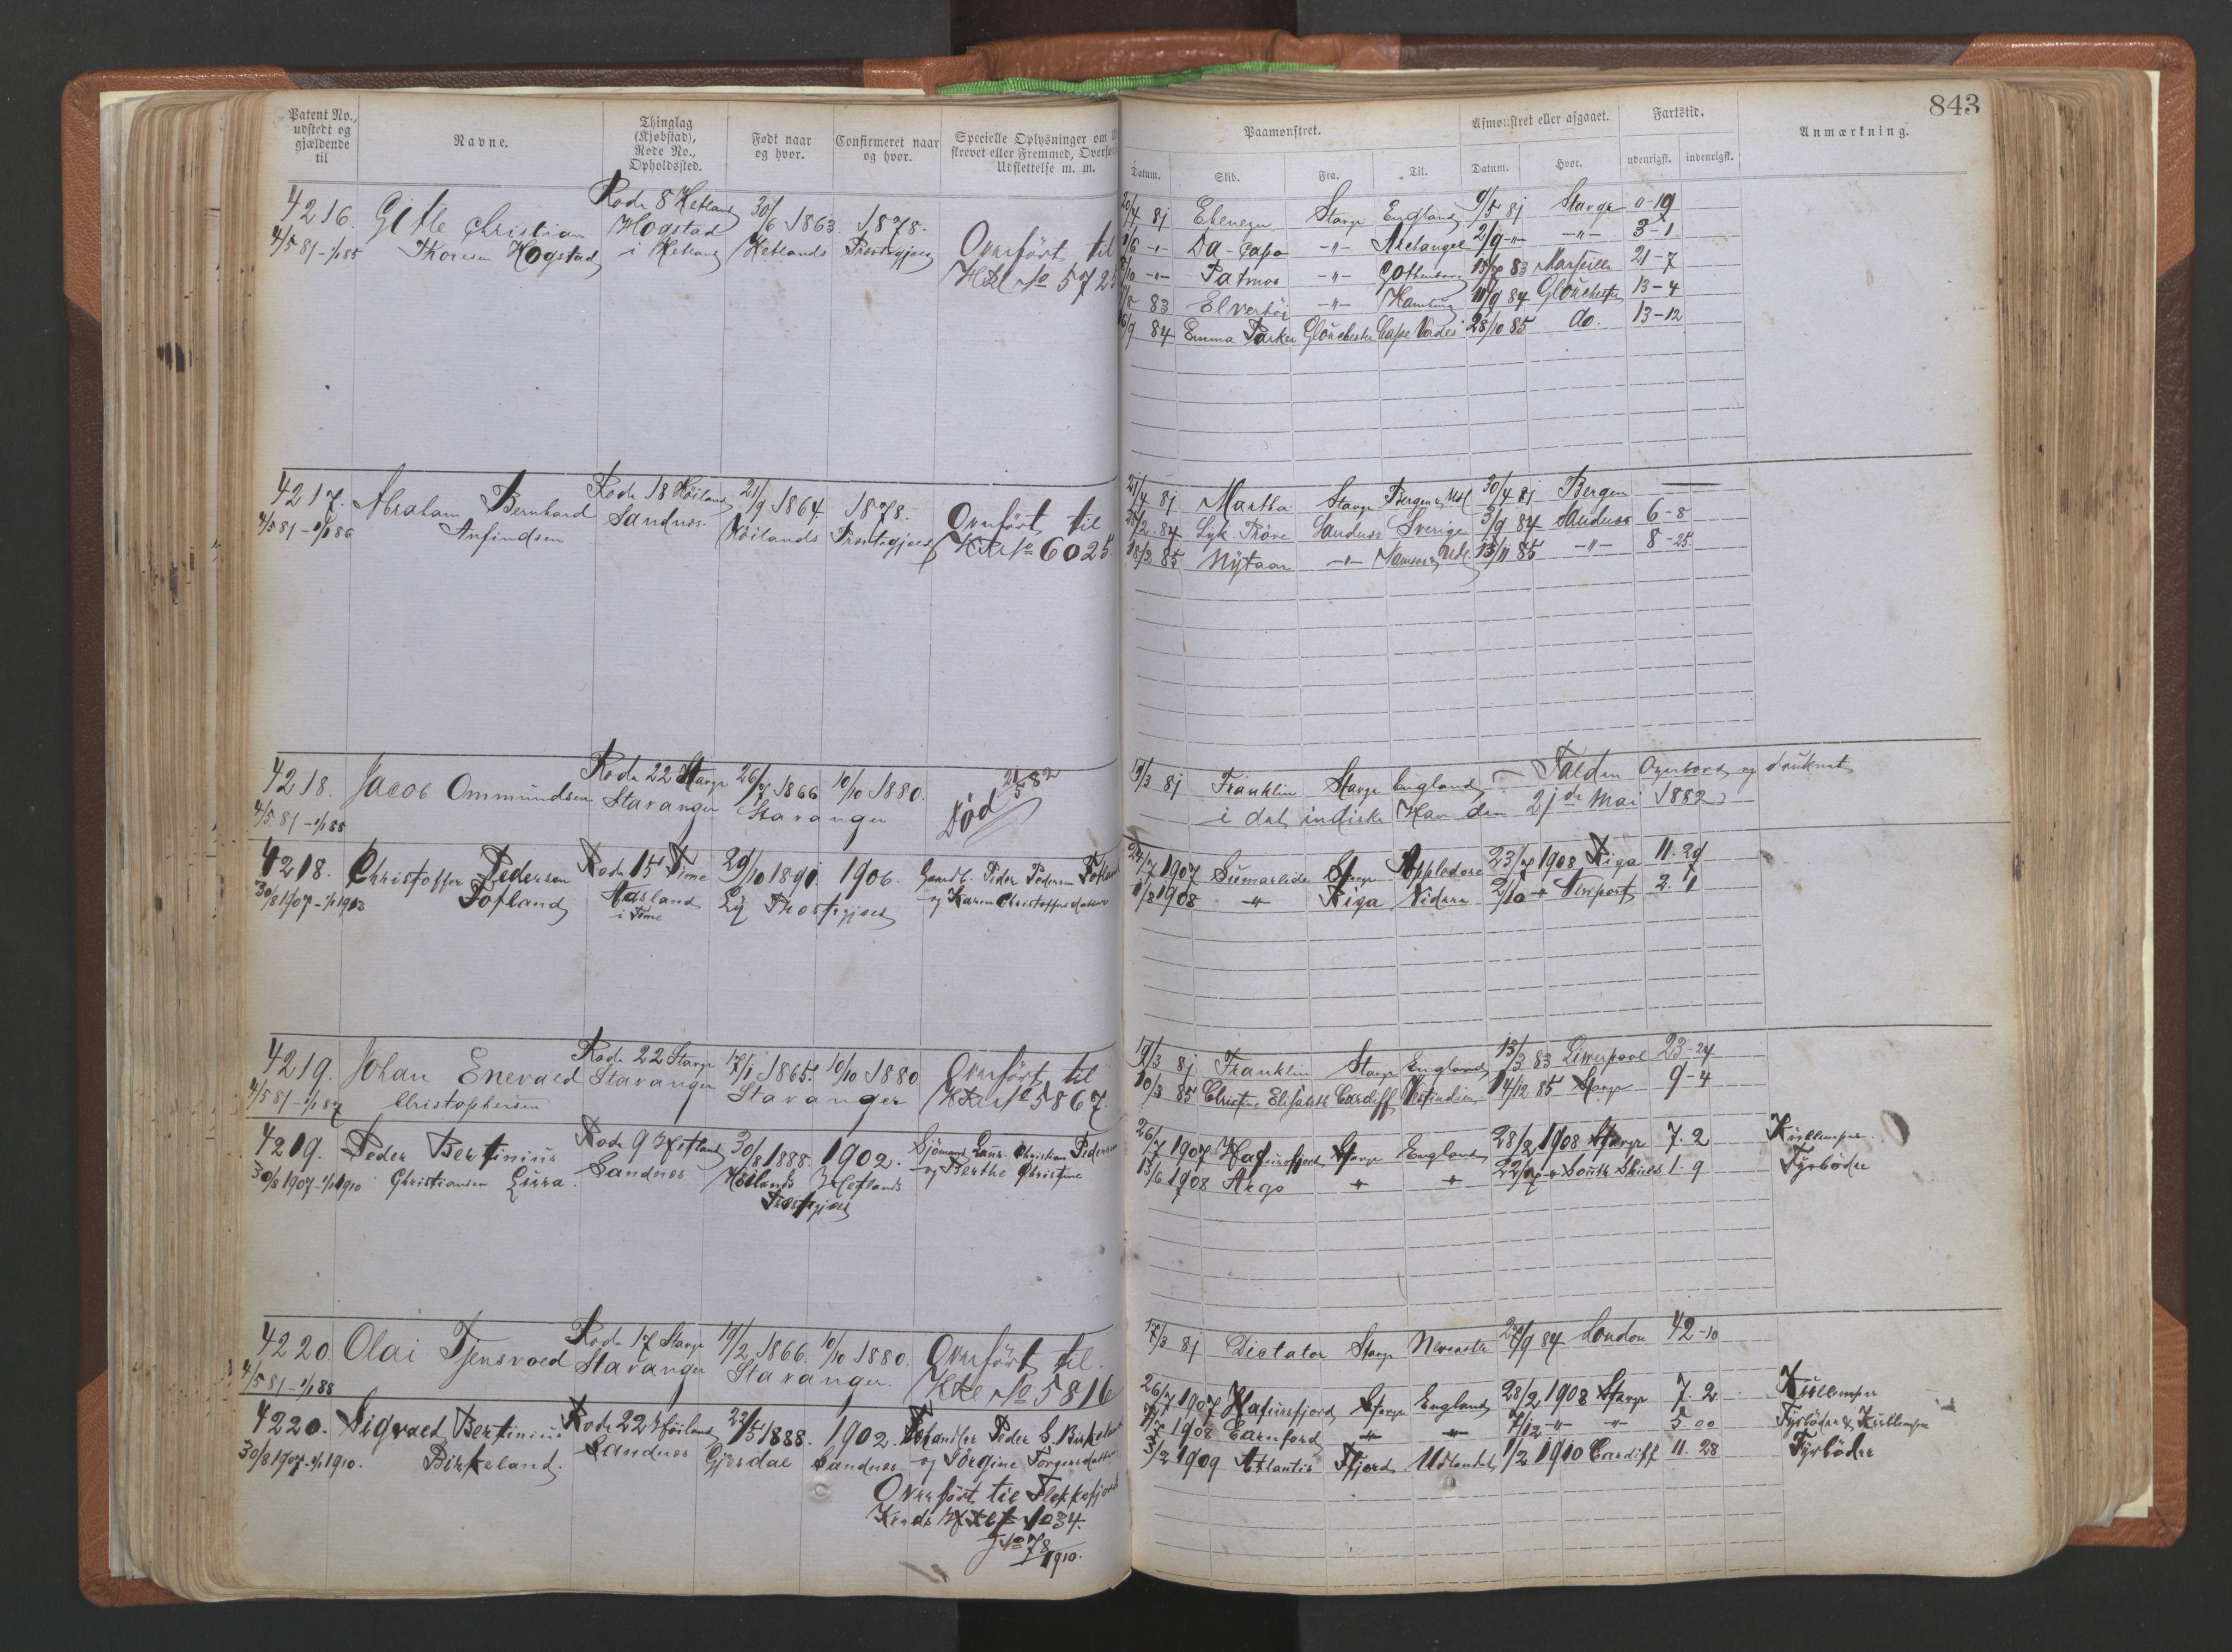 843
Patent No., udstedt og gjældende til
Navne.
Thinglag (Kjøbstad), Rode No., Opholdssted.
Født naar og hvor.
Confirmeret naar og hvor.
Specielle Oplysninger om
Udslettelse m. m.
Paamønstret.
Afmønstret eller afgaaet.
Fartstid.
Anmærkning.
Datum.
Skib.
Fra.
Til.
Datum.
Hvor.
udenrigsk.
indenrigsk.
4216. Gitle Christian Rode 8 Hetland 30/6 1863. 1878.
4/5 81 - 1/1 85 Thorsen Hogstad Hogstad i Hetland Hetlands Præstegjæld
Overført til
Htl No 572
/4 81 Ebenezer Stavgr England 9/5 81 Stavgr 0-19
/6 -"- Da-Capo -"- Archangel 2/9 -"- -"- 3-1
/10 -"- Patmos -"- Gothenborg 83 Marseille 21-7
83 -"- Hamburg /9 84 Glouchester 13-4
/9 84 Emma Parker Glouchester Cape Verdes 28/10 85 do. 13-12
4217. Abraham Bernhard Rode 18 Høiland 21/9 1864. 1878.
4/5 81 - 1/1 86 Anfindsen Sandnes. Høilands Præstegjæld
Overført til
No 6025
21/4 81 Martha Stavgr Bergen & Udl 30/4 81 Bergen
/2 84 Lyk. Prøve Sandnes Sverige 3/9 84 Sandnes 6-8
18/2 85 Nytaar -"- 13/11 85 -"- 8-25
4218. Jacob Ommundsen Rode 22 Stavgr 26/7 1866 10/10 1880.
4/5 81 - 1/1 88 Stavanger Stavanger
Død 21/5 82
19/3 81 Franklin Stavgr England - Falden Overbord og druknet
i det indiske Hav den 21de Mai 1882
4218. Christoffer Pedersen Rode 15 Time 29/10 1891. 1906.
30/8 1907 - 1/1 1913 Fosland Aasland i Time Ly Præstegjæld
Gaardb. Peder Pedersen
og Karen Christoffersdatter
24/7 1907 Sumarlide Stavgr Appledore 23/7 1908 Riga 11. 29
/8 1908 -"- Riga 2/10 -"- Newport 2. 1
4219. Johan Enevald Rode 22 Stavgr 17/1 1865. 10/10 1880
4/5 81 - 1/1 87 Christophersen Stavanger Stavanger
Overført til
No 5867.
19/3 81 Franklin Stavgr England 13/3 83 Liverpool 23-24
10/3 85 Christine Elisabeth Cardiff Vestindien 14/12 85 Stavgr 9-4
4219. Peder Bertinius Rode 9 Hetland 30/8 1888. 1902.
30/8 1907 - 1/1 1910 Christiansen Lura. Sandnes Høilands Hetlands
Præstegjæld
Sjømand Laur. Christian Pedersen
og Berthe Christine
26/7 1907 Hafursfjord Stavgr England 28/2 1908 Stavgr 7. 2 Kullemper
13/6 1908 Argo " " 22/7 -"- South Shields 1. 9 Fyrbøder
4220. Olai Tjensvold Rode 17 Stavgr 19/2 1866. 10/10 1880.
4/5 81 - 1/1 88 Stavanger Stavanger.
Overført til.
Htl No 5816
17/3 81 Dictator Stavgr Newcastle 27/9 84 London 42-10
4220. Sigvald Bertinius Rode 22 Høiland 22/5 1888. 1902.
30/8 1907 - 1/1 1910. Birkeland. Sandnes Gjesdal Sandnes
Peder S. Birkeland
og Jørgine Torgersdatter
Overført til Flekkefjords
Kreds 1034.
J. No 78/1910.
26/7 1907 Hafursfjord Stavgr England 28/2 1908 Stavgr 7. 2 Kullemper
1908 Earnford -"- -"- 7/12 -"- -"- 5 00 Fyrbøder & Kullemper
3/2 1909 Atlantis Ffjord Udlandet 1/2 1910 Cardiff 11. 28 Fyrbøder